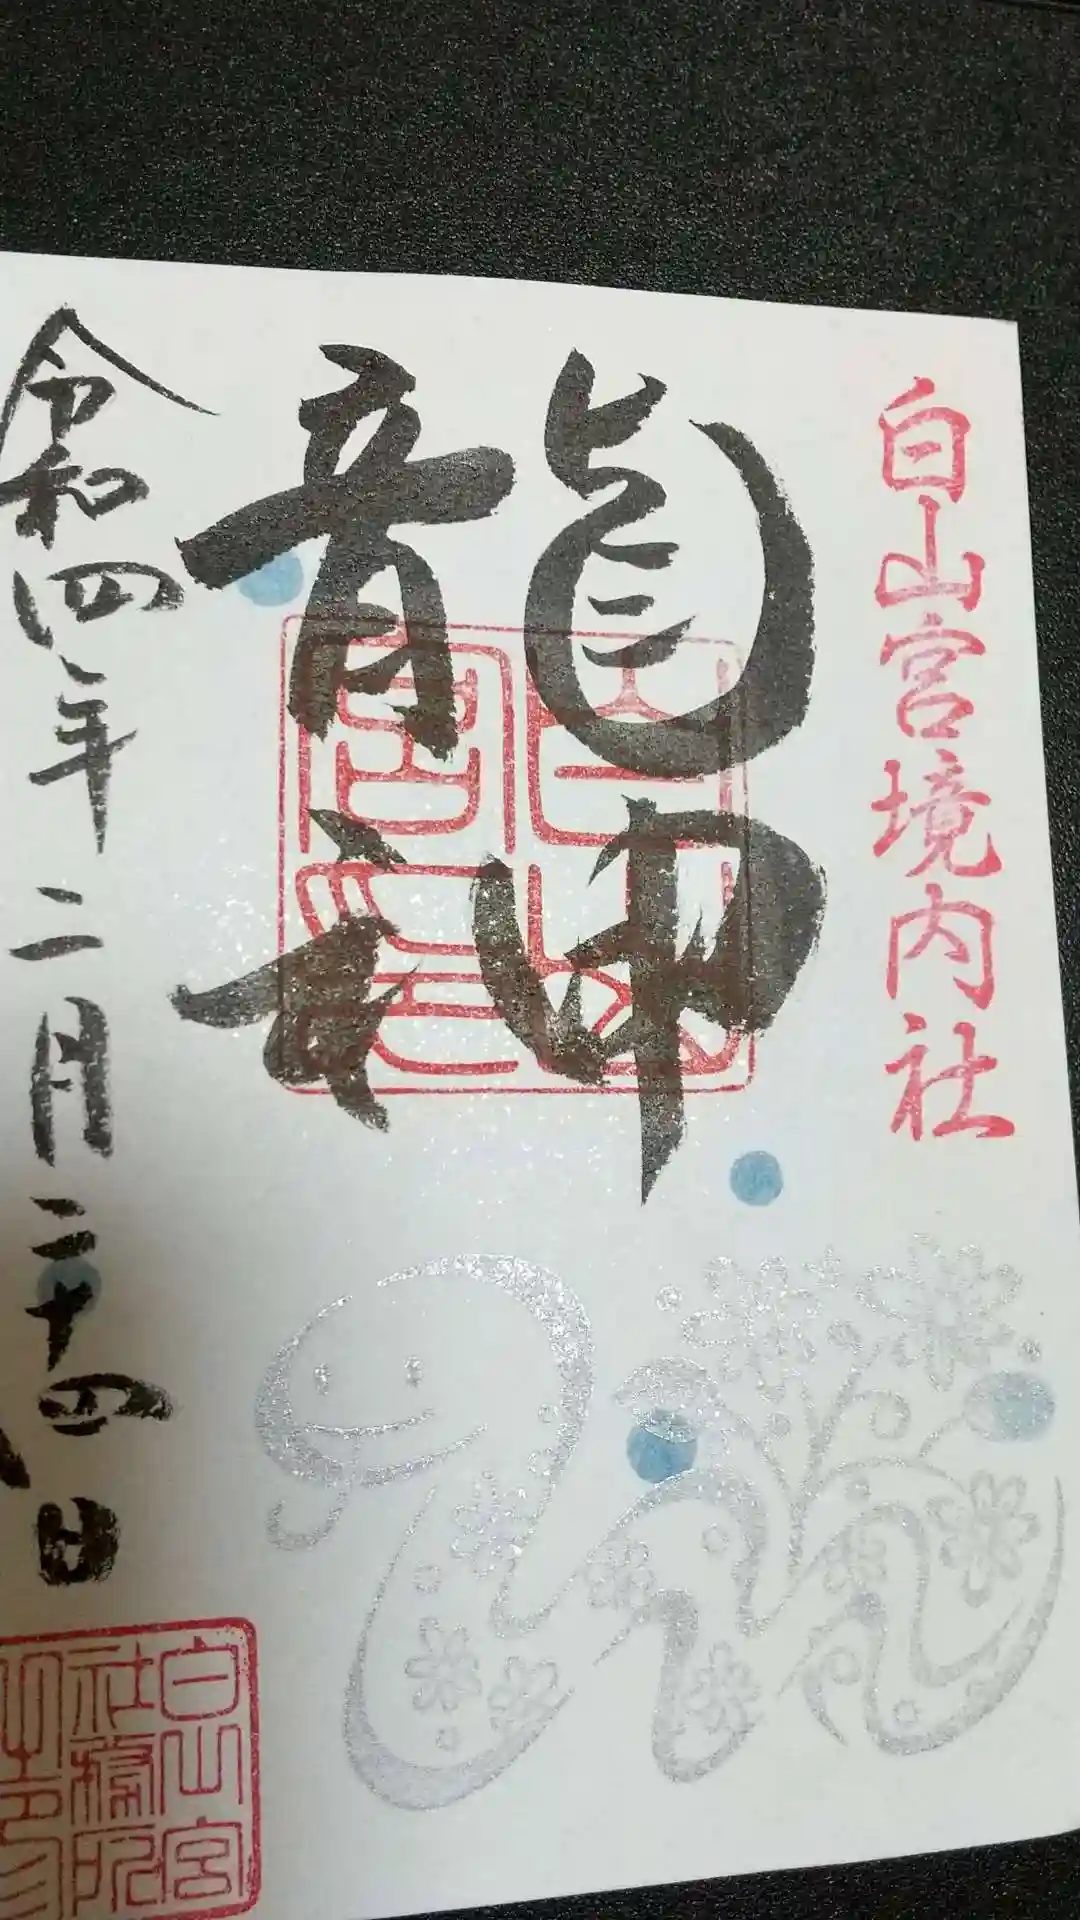 白山宮境内社
龍神
令和四年二月二十四日
白山宮
社務所